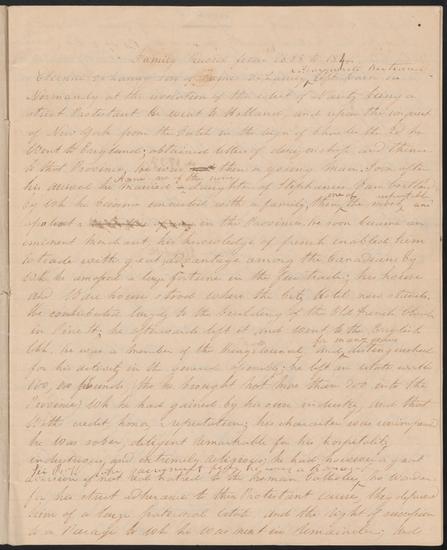 Family Record from 1685 to 18
Etienne de Lancy son of & Marguerite Bertrand was born in
Normandy at the revolution of the edict of Nantz being a
strict Protestant He went to Holland, and upon the conquest
of New York from the Dutch in the reign of Charles the 2d he
went to England, obtained letters of denizenship and thence
to that Province, he was then a young man. Soon after
his arrival he married Anne one of the daughters of Stephanus Van Cortlandt
by wh he became connected with a family, then the most
opulent in the Province. He soon became an
eminent Merchant his knowledge of french enabled him
to trade with great advantage among the Canadians by
wh he amassed a large fortune in the Fur trade; his house
and Ware house stood where the City Hotel now stands.
He contributed largely to the building of the Old French Church
in Pine St; he afterwards left it and went to the English
Chh, he was a member of the Kings Council for many years and distinguished
for his activity in the general assembly; he left an estate worth
100,000 pounds, tho he brought not more than 300 into the
Province; wh he had gained by his own industry and that
with credit honor & reputation; his character was unimpeached
he was sober, diligent remarkable for his hospitality
industrious, and extremely religious; he had however a great
aversion if not real hatred to the Roman Catholics, no wonder
for his strict adherence to the Protestant cause, they deprived
him of a large paternal estate and the right of succession
to a Peerage to wh he was next in Remainder; and